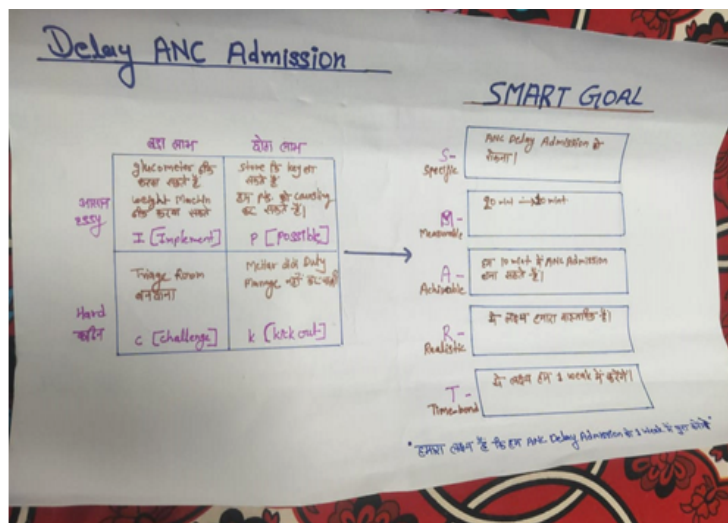 Delay ANC Admission
SMART GOAL
बड़ा लाभ
छोटा लाभ
आसान
Essy
glucometer ठीक
करवा सकते है
weight Machin
ठीक करवा सकते
I [Implement]
store कि key ला
सकते है
हम Pt. को
कर सकते है।
P [Possible]
Hard
कठिन
Triage Room
बनवाना
C [challenge]
Duty
नहीं कर सकते
K [kick out]
S-
Specific
ANC Delay Admission को
रोकना।
M-
Measurable
A-
Achivable
हम 10 mint में ANC Admission
बना सकते है।
R-
Realistic
ये लक्ष्य हमारा वास्तविक है।
T-
Timebond
ये लक्ष्य हम 1 week में करेंगे।
"हमारा लक्ष्य है कि हम ANC Delay Admission को 1 week में पूरा करेंगे"